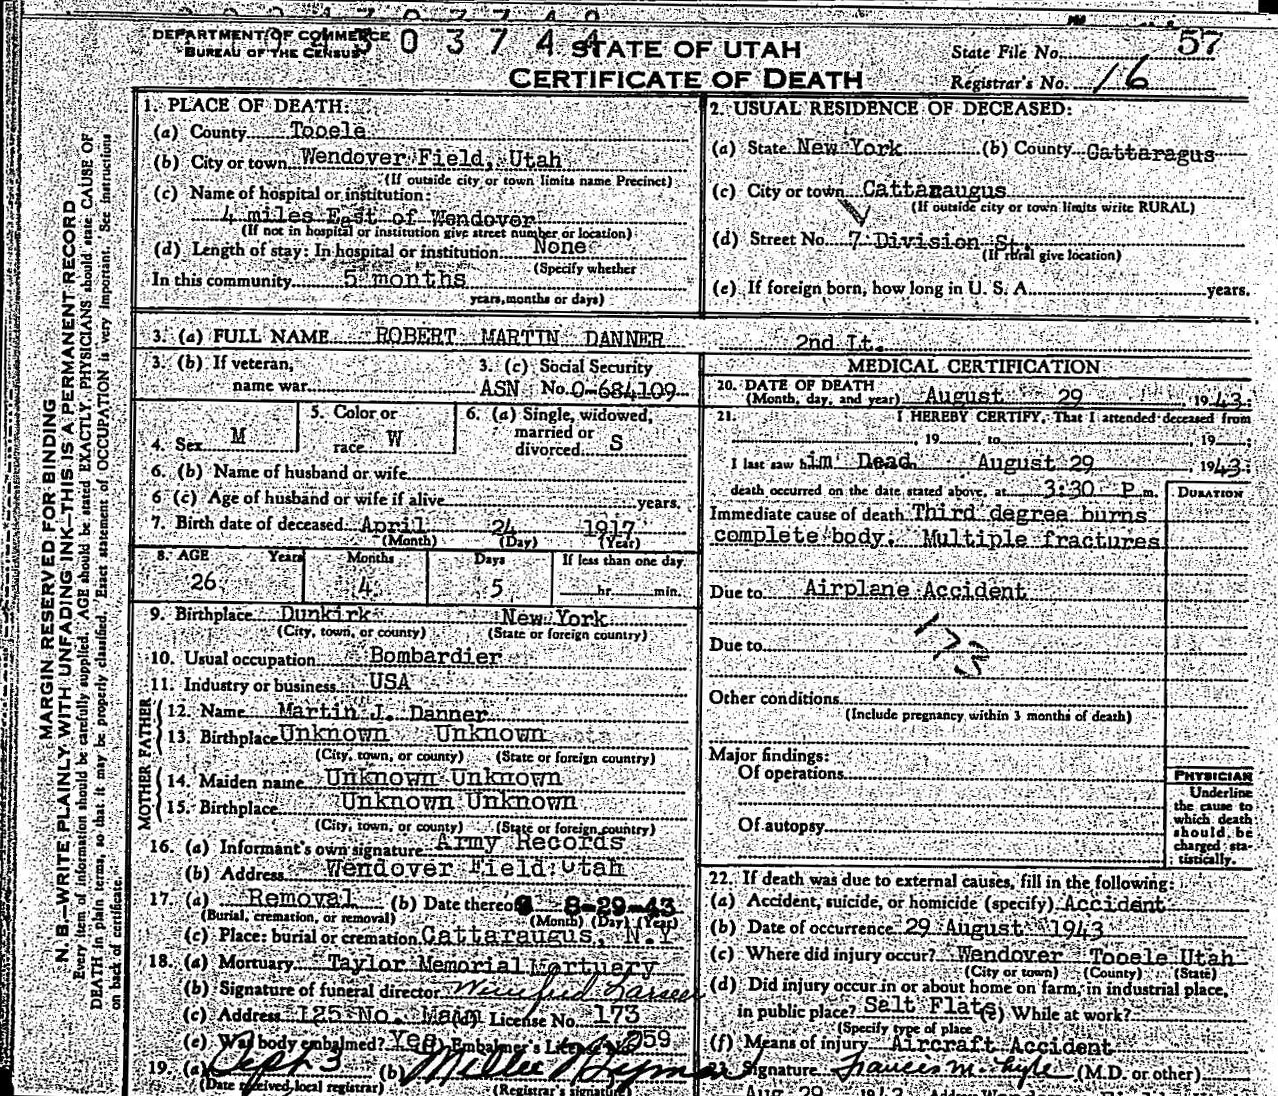 DEPARTMENT OF COMMERCE
BUREAU OF THE CENSUS
STATE OF UTAH
CERTIFICATE OF DEATH
State File No. 57
Registrar's No. 16
MARGIN RESERVED FOR BINDING
N. B.—WRITE PLAINLY WITH UNFADING INK—THIS IS A PERMANENT RECORD
Every item of information should be carefully supplied. AGE should be stated EXACTLY. PHYSICIANS should state CAUSE OF
DEATH in plain terms, so that it may be properly classified. Exact statement of OCCUPATION is very important. See instructions
on back of certificate.
1. PLACE OF DEATH:
(a) County Tooele
(b) City or town Wendover Field, Utah
(If outside city or town limits name Precinct)
(c) Name of hospital or institution:
4 miles East of Wendover
(If not in hospital or institution give street number or location)
(d) Length of stay: In hospital or institution None
(Specify whether
In this community 5 months
years, months or days)
2. USUAL RESIDENCE OF DECEASED:
(a) State New York (b) County Cattaragus
(c) City or town Cattaraugus
(If outside city or town limits write RURAL)
(d) Street No. 7 Division St.
(If rural give location)
(e) If foreign born, how long in U. S. A. years.
3. (a) FULL NAME ROBERT MARTIN DANNER 2nd Lt.
3. (b) If veteran, name war
3. (c) Social Security
ASN No. O-684109
4. Sex M
5. Color or race W
6. (a) Single, widowed, married or divorced S
6. (b) Name of husband or wife
6 (c) Age of husband or wife if alive years.
7. Birth date of deceased April 24 1917
(Month) (Day) (Year)
8. AGE Years Months Days If less than one day
26 4 5 hr. min.
9. Birthplace Dunkirk New York
(City, town, or county) (State or foreign country)
10. Usual occupation Bombardier
11. Industry or business USA
FATHER
12. Name Martin J. Danner
13. Birthplace Unknown Unknown
(City, town, or county) (State or foreign country)
MOTHER
14. Maiden name Unknown Unknown
15. Birthplace Unknown Unknown
(City, town, or county) (State or foreign country)
16. (a) Informant's own signature Army Records
(b) Address Wendover Field Utah
17. (a) Removal (b) Date thereof 8-29-43
(Burial, cremation, or removal) (Month) (Day) (Year)
(c) Place: burial or cremation Cattaraugus, N.Y
18. (a) Mortuary Taylor Memorial Mortuary
(b) Signature of funeral director Winifred Larsen
(c) Address 125 No. Main License No. 173
(e) Was body embalmed? Yes Embalmer's License No. 259
19. (a) Sept 3 (b)
(Date received local registrar) (Registrar's signature)
MEDICAL CERTIFICATION
20. DATE OF DEATH
(Month, day, and year) August 29 1943
21. I HEREBY CERTIFY, That I attended deceased from
, 19 to , 19 ;
I last saw him Dead August 29 1943;
death occurred on the date stated above, at 3:30 P m.
DURATION
Immediate cause of death Third degree burns
complete body. Multiple fractures
Due to Airplane Accident
173
Due to
Other conditions
(Include pregnancy within 3 months of death)
Major findings:
Of operations
Of autopsy
PHYSICIAN
Underline
the cause to
which death
should be
charged sta-
tistically.
22. If death was due to external causes, fill in the following:
(a) Accident, suicide, or homicide (specify) Accident
(b) Date of occurrence 29 August 1943
(c) Where did injury occur? Wendover Tooele Utah
(City or town) (County) (State)
(d) Did injury occur in or about home on farm, in industrial place,
in public place? Salt Flats (e) While at work?
(Specify type of place
(f) Means of injury Aircraft Accident
Signature Francis M. (M.D. or other)